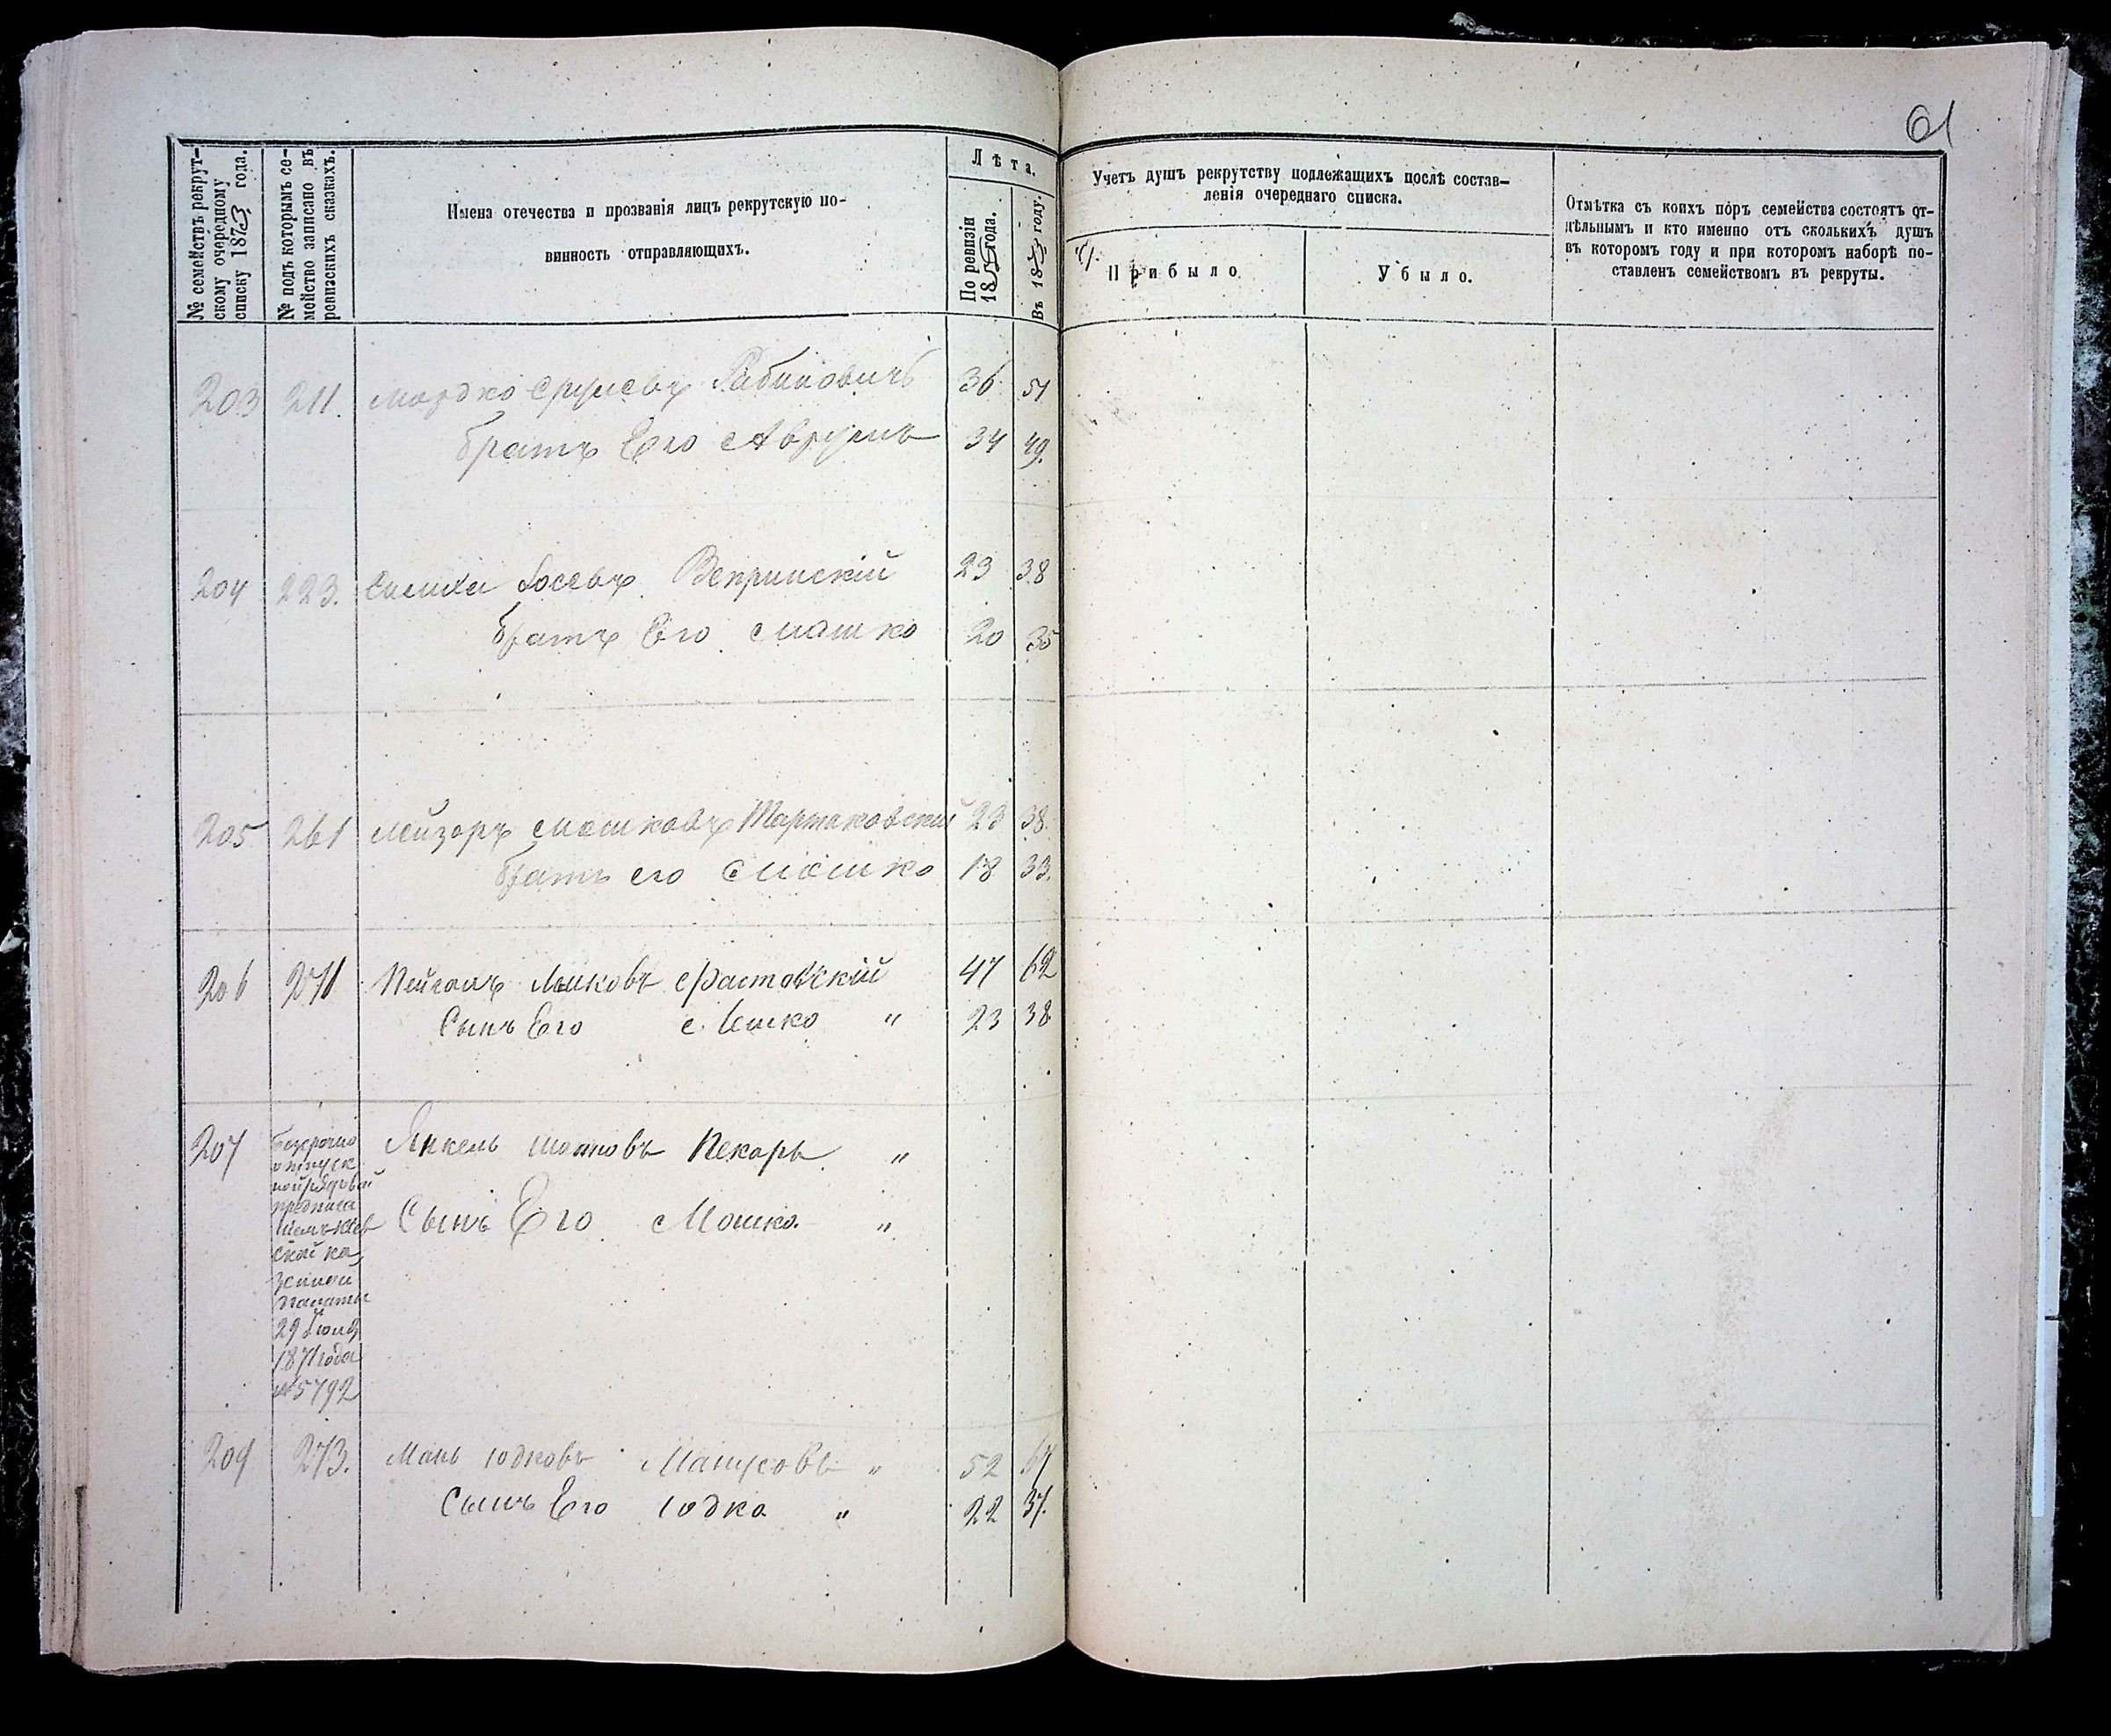 61
№ семействъ рекрут-
скому очередному
списку 1873 года.
№ подъ которымъ се-
мейство записано въ
ревизскихъ сказкахъ.
Имена отечества и прозванія лицъ рекрутскую по-
винность отправляющихъ.
Лѣта.
По ревизіи
1858 года.
Въ 1873 году.
Учетъ душъ рекрутству подлежащихъ послѣ состав-
ленія очереднаго списка.
Прибыло
Убыло.
Отмѣтка съ коихъ поръ семейства состоятъ от-
дѣльнымъ и кто именно отъ сколькихъ душъ
въ котором году и при котором наборѣ по-
ставленъ семейством въ рекруты.
203 211. Мордко Срулевъ Рабиновичъ 36 51
братъ Его Аврумъ 34 49.
204 223. Симха Іосевъ Вепринскій 23 38
братъ Его Мошко 20 35
205 261 Лейзоръ Мошковъ Тартаковскій 23 38.
братъ его Мошко 18 33.
206 271 Лейковъ Фастовскій 47 62
Сынъ Его Ицко " 23 38
207 Янкель Пекарь "
Сынъ Его Мошко "
отпуск
ской ка
зенной
палаты
29 Іюня
1871 года
№ 5792
209 273. Мань Юдковъ Манусовъ " 52 67
Сынъ Его Юдко " 22 37.